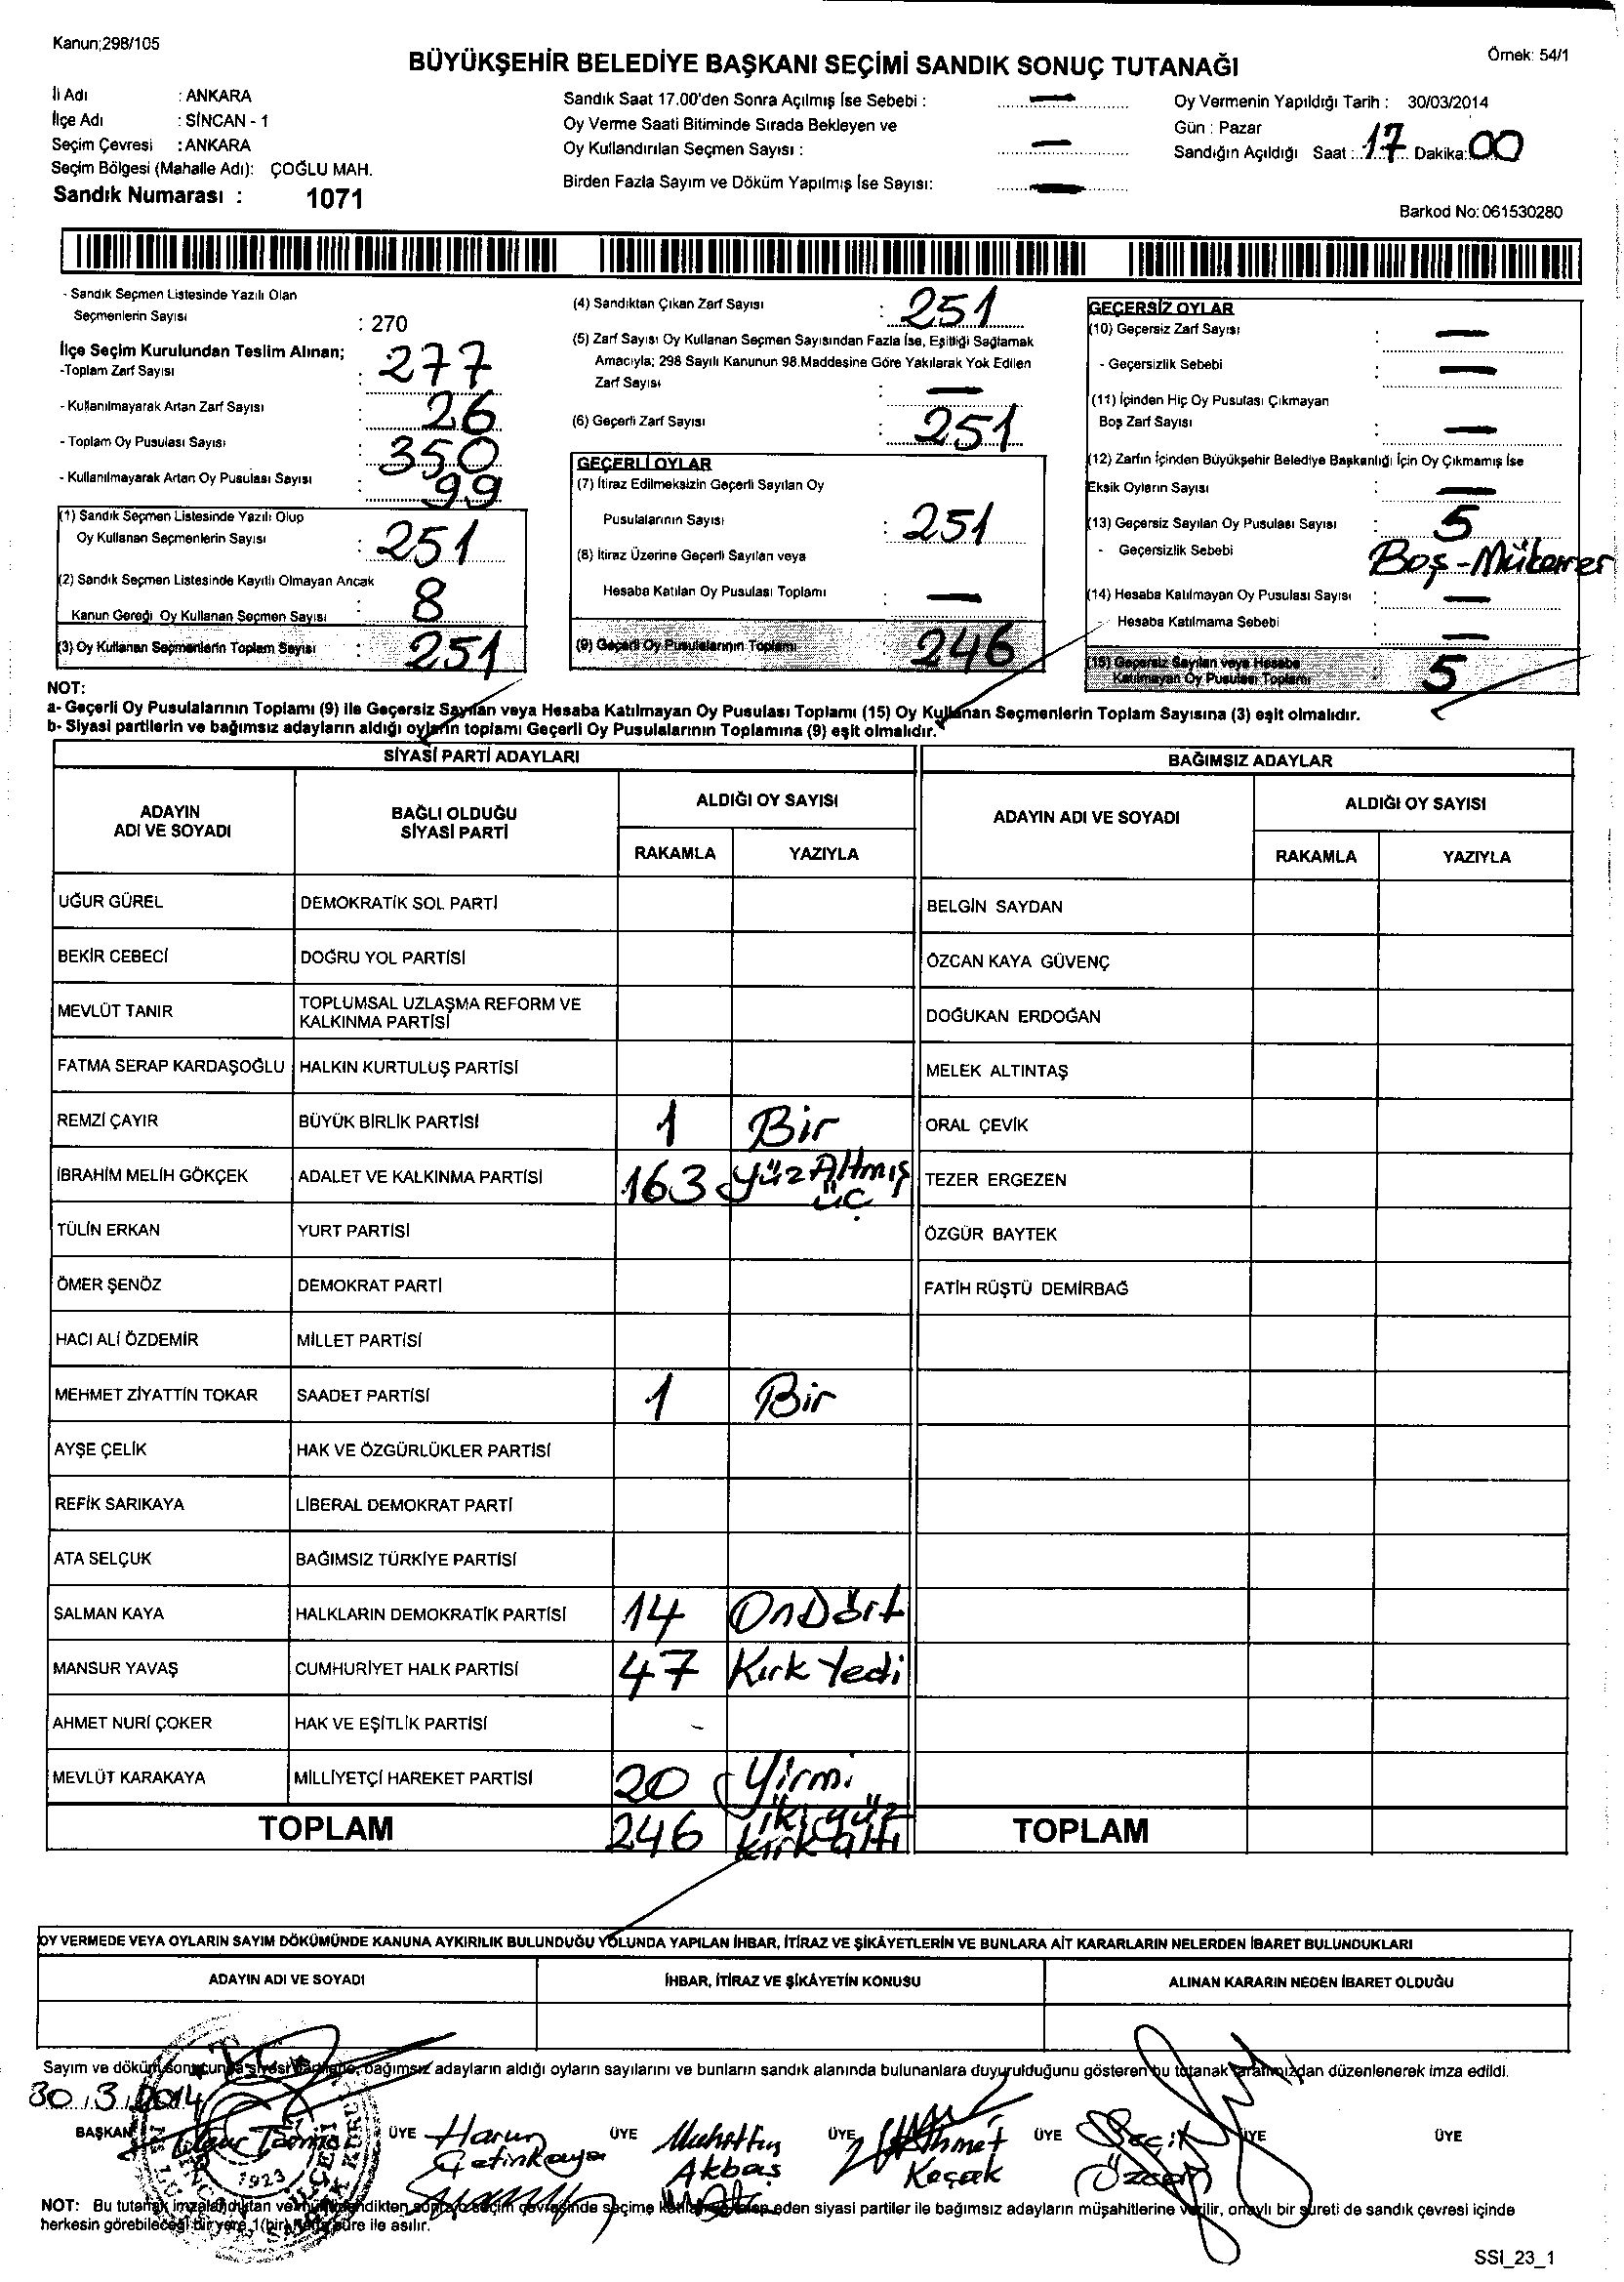 Kanun;298/105
Örnek: 54/1
BÜYÜKŞEHİR BELEDİYE BAŞKANI SEÇİMİ SANDIK SONUÇ TUTANAĞI
İli Adı : ANKARA
İlçe Adı : SİNCAN - 1
Seçim Çevresi : ANKARA
Seçim Bölgesi (Mahalle Adı): ÇOĞLU MAH.
Sandık Numarası : 1071
Sandık Saat 17.00'den Sonra Açılmış İse Sebebi : —
Oy Verme Saati Bitiminde Sırada Bekleyen ve
Oy Kullandırılan Seçmen Sayısı : —
Birden Fazla Sayım ve Döküm Yapılmış İse Sayısı: —
Oy Vermenin Yapıldığı Tarih : 30/03/2014
Gün : Pazar
Sandığın Açıldığı Saat : 17 Dakika: 00
Barkod No: 061530280
- Sandık Seçmen Listesinde Yazılı Olan
Seçmenlerin Sayısı : 270
İlçe Seçim Kurulundan Teslim Alınan;
-Toplam Zarf Sayısı : 277
- Kullanılmayarak Artan Zarf Sayısı : 26
- Toplam Oy Pusulası Sayısı : 350
- Kullanılmayarak Artan Oy Pusulası Sayısı : 99
(1) Sandık Seçmen Listesinde Yazılı Olup
Oy Kullanan Seçmenlerin Sayısı : 251
(2) Sandık Seçmen Listesinde Kayıtlı Olmayan Ancak
Kanun Gereği Oy Kullanan Seçmen Sayısı : 8
(3) Oy Kullanan Seçmenlerin Toplam Sayısı : 251
(4) Sandıktan Çıkan Zarf Sayısı : 251
(5) Zarf Sayısı Oy Kullanan Seçmen Sayısından Fazla İse, Eşitliği Sağlamak
Amacıyla; 298 Sayılı Kanunun 98.Maddesine Göre Yakılarak Yok Edilen
Zarf Sayısı : —
(6) Geçerli Zarf Sayısı : 251
GEÇERLİ OYLAR
(7) İtiraz Edilmeksizin Geçerli Sayılan Oy
Pusulalarının Sayısı : 251
(8) İtiraz Üzerine Geçerli Sayılan veya
Hesaba Katılan Oy Pusulası Toplamı : —
(9) Geçerli Oy Pusulalarının Toplamı 246
GEÇERSİZ OYLAR
(10) Geçersiz Zarf Sayısı : —
- Geçersizlik Sebebi : —
(11) İçinden Hiç Oy Pusulası Çıkmayan
Boş Zarf Sayısı : —
(12) Zarfın İçinden Büyükşehir Belediye Başkanlığı İçin Oy Çıkmamış İse
Eksik Oyların Sayısı : —
(13) Geçersiz Sayılan Oy Pusulası Sayısı : 5
- Geçersizlik Sebebi Boş-Mükerrer
(14) Hesaba Katılmayan Oy Pusulası Sayısı : —
- Hesaba Katılmama Sebebi : —
(15) Geçersiz Sayılan veya Hesaba
Katılmayan Oy Pusulası Toplamı : 5
NOT:
a- Geçerli Oy Pusulalarının Toplamı (9) ile Geçersiz Sayılan veya Hesaba Katılmayan Oy Pusulası Toplamı (15) Oy Kullanan Seçmenlerin Toplam Sayısına (3) eşit olmalıdır.
b- Siyasi partilerin ve bağımsız adayların aldığı oyların toplamı Geçerli Oy Pusulalarının Toplamına (9) eşit olmalıdır.
SİYASİ PARTİ ADAYLARI
BAĞIMSIZ ADAYLAR
ADAYIN
ADI VE SOYADI
BAĞLI OLDUĞU
SİYASİ PARTİ
ALDIĞI OY SAYISI
RAKAMLA YAZIYLA
ADAYIN ADI VE SOYADI
ALDIĞI OY SAYISI
RAKAMLA YAZIYLA
UĞUR GÜREL DEMOKRATİK SOL PARTİ BELGİN SAYDAN
BEKİR CEBECİ DOĞRU YOL PARTİSİ ÖZCAN KAYA GÜVENÇ
MEVLÜT TANIR TOPLUMSAL UZLAŞMA REFORM VE
KALKINMA PARTİSİ DOĞUKAN ERDOĞAN
FATMA SERAP KARDAŞOĞLU HALKIN KURTULUŞ PARTİSİ MELEK ALTINTAŞ
REMZİ ÇAYIR BÜYÜK BİRLİK PARTİSİ 1 Bir ORAL ÇEVİK
İBRAHİM MELİH GÖKÇEK ADALET VE KALKINMA PARTİSİ 163 YüzAltmış
üç TEZER ERGEZEN
TÜLİN ERKAN YURT PARTİSİ ÖZGÜR BAYTEK
ÖMER ŞENÖZ DEMOKRAT PARTİ FATİH RÜŞTÜ DEMİRBAĞ
HACI ALİ ÖZDEMİR MİLLET PARTİSİ
MEHMET ZİYATTİN TOKAR SAADET PARTİSİ 1 Bir
AYŞE ÇELİK HAK VE ÖZGÜRLÜKLER PARTİSİ
REFİK SARIKAYA LİBERAL DEMOKRAT PARTİ
ATA SELÇUK BAĞIMSIZ TÜRKİYE PARTİSİ
SALMAN KAYA HALKLARIN DEMOKRATİK PARTİSİ 14 OnDört
MANSUR YAVAŞ CUMHURİYET HALK PARTİSİ 47 Kırk Yedi
AHMET NURİ ÇOKER HAK VE EŞİTLİK PARTİSİ -
MEVLÜT KARAKAYA MİLLİYETÇİ HAREKET PARTİSİ 20 Yirmi
TOPLAM 246 ikiyüz
kırkaltı TOPLAM
OY VERMEDE VEYA OYLARIN SAYIM DÖKÜMÜNDE KANUNA AYKIRILIK BULUNDUĞU YOLUNDA YAPILAN İHBAR, İTİRAZ VE ŞİKÂYETLERİN VE BUNLARA AİT KARARLARIN NELERDEN İBARET BULUNDUKLARI
ADAYIN ADI VE SOYADI İHBAR, İTİRAZ VE ŞİKÂYETİN KONUSU ALINAN KARARIN NEDEN İBARET OLDUĞU
Sayım ve döküm sonucunda siyasi partilerin, bağımsız adayların aldığı oyların sayılarını ve bunların sandık alanında bulunanlara duyurulduğunu gösteren bu tutanak tarafımızdan düzenlenerek imza edildi.
30.3.2014
BAŞKAN ÜYE Harun ÜYE Muhattin ÜYE Ahmet ÜYE ÜYE ÜYE
Çetinkaya Akbaş Koçak Özcan
1923
NOT: Bu tutanak imzalandıktan ve mühürlendikten sonra o seçim çevresinde seçime katılan ve talep eden siyasi partiler ile bağımsız adayların müşahitlerine verilir, onaylı bir sureti de sandık çevresi içinde
herkesin görebileceği bir yere 1(bir) süre ile asılır.
SSI_23_1